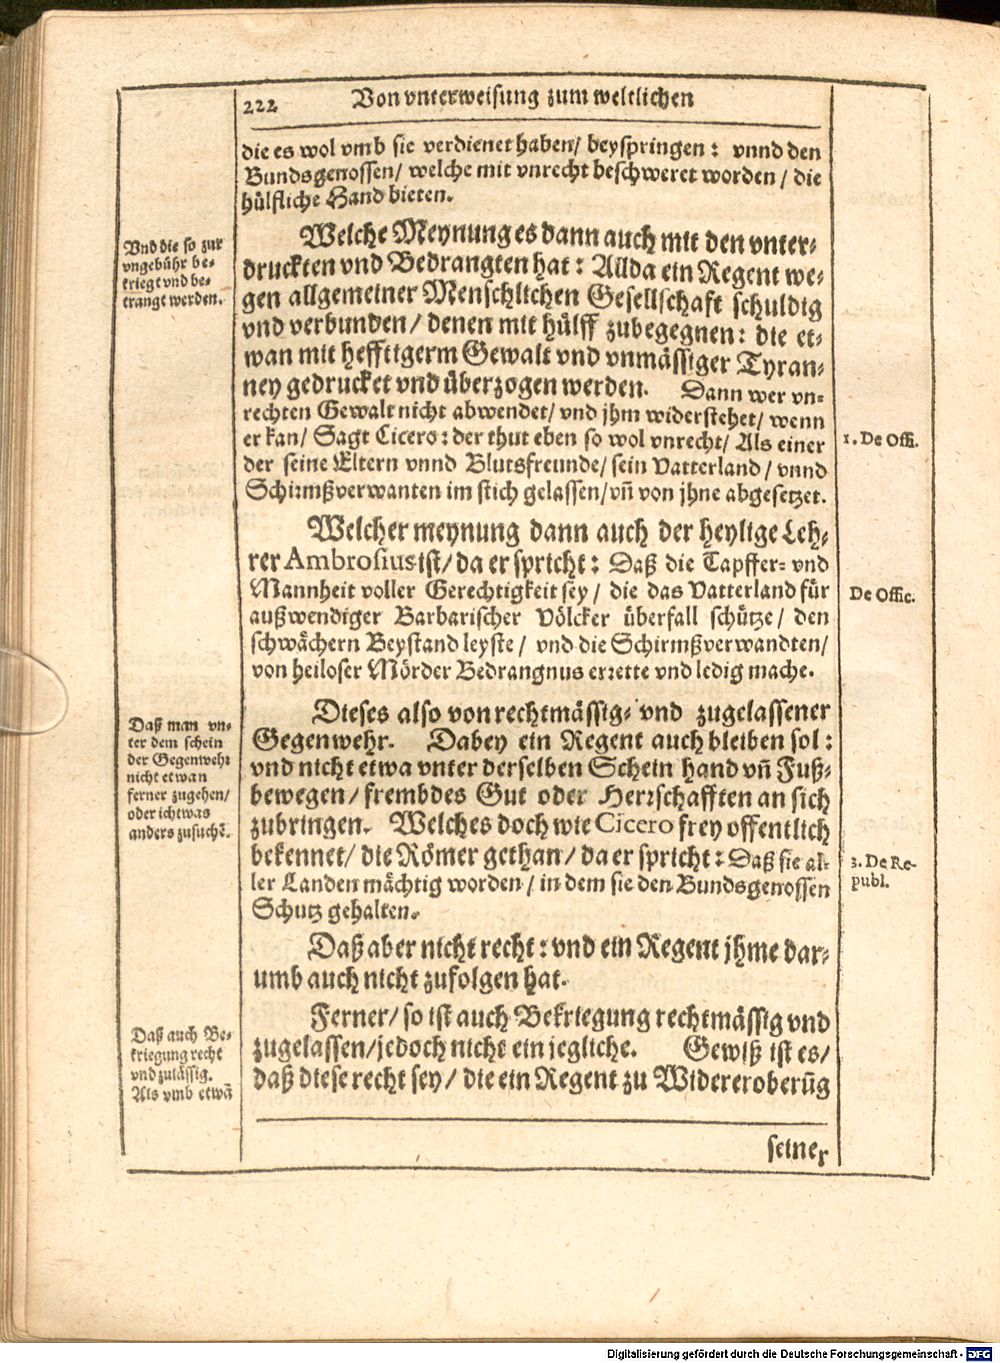 222 Von vnterweisung zum weltlichen
die es wol vmb sie verdienet haben/ beyspringen: vnnd den
Bundsgenossen/ welche mit vnrecht beschweret worden/ die
hülfliche Hand bieten.
Vnd die so zur
vngebühr be-
kriegt vnd be-
trangt werden.
Welche Meynung es dann auch mit den vnter-
druckten vnd Bedrangten hat: Allda ein Regent we-
gen allgemeiner Menschlichen Gesellschaft schuldig
vnd verbunden/ denen mit hülff zubegegnen: die et-
wan mit hefftigerm Gewalt vnd vnmässiger Tyran-
ney gedrucket vnd überzogen werden. Dann wer vn-
rechten Gewalt nicht abwendet/ vnd jhm widerstehet/ wenn
er kan/ Sagt Cicero: der thut eben so wol vnrecht/ Als einer
der seine Eltern vnnd Blutsfreunde/ sein Vatterland/ vnnd
Schirmßverwanten im stich gelassen/ vn̄ von jhne abgesetzet.
1. De Offi.
Welcher meynung dann auch der heylige Leh-
rer Ambrosius ist/ da er spricht: Daß die Tapffer- vnd
Mannheit voller Gerechtigkeit sey/ die das Vatterland für
außwendiger Barbarischer Völcker überfall schütze/ den
schwächern Beystand leyste/ vnd die Schirmßverwandten/
von heiloser Mörder Bedrangnus errette vnd ledig mache.
De Offic.
Dieses also von rechtmässig- vnd zugelassener
Gegenwehr. Dabey ein Regent auch bleiben sol:
vnd nicht etwa vnter derselben Schein hand vn̄ Fuß-
bewegen/ frembdes Gut oder Herrschafften an sich
zubringen. Welches doch wie Cicero frey offentlich
bekennet/ die Römer gethan/ da er spricht: Daß sie al-
ler Landen mächtig worden/ in dem sie den Bundsgenossen
Schutz gehalten.
Daß man vn-
ter dem schein
der Gegenwehr
nicht etwan
ferner zugehen/
oder ichtwas
anders zusuchē.
3. De Re-
publ.
Daß aber nicht recht: vnd ein Regent jhme dar-
umb auch nicht zufolgen hat.
Ferner/ so ist auch Bekriegung rechtmässig vnd
zugelassen/ jedoch nicht ein jegliche. Gewiß ist es/
daß diese recht sey/ die ein Regent zu Widereroberūg
Daß auch Be-
kriegung recht
vnd zulässig.
Als vmb etwā
seiner
Digitalisierung gefördert durch die Deutsche Forschungsgemeinschaft - DFG